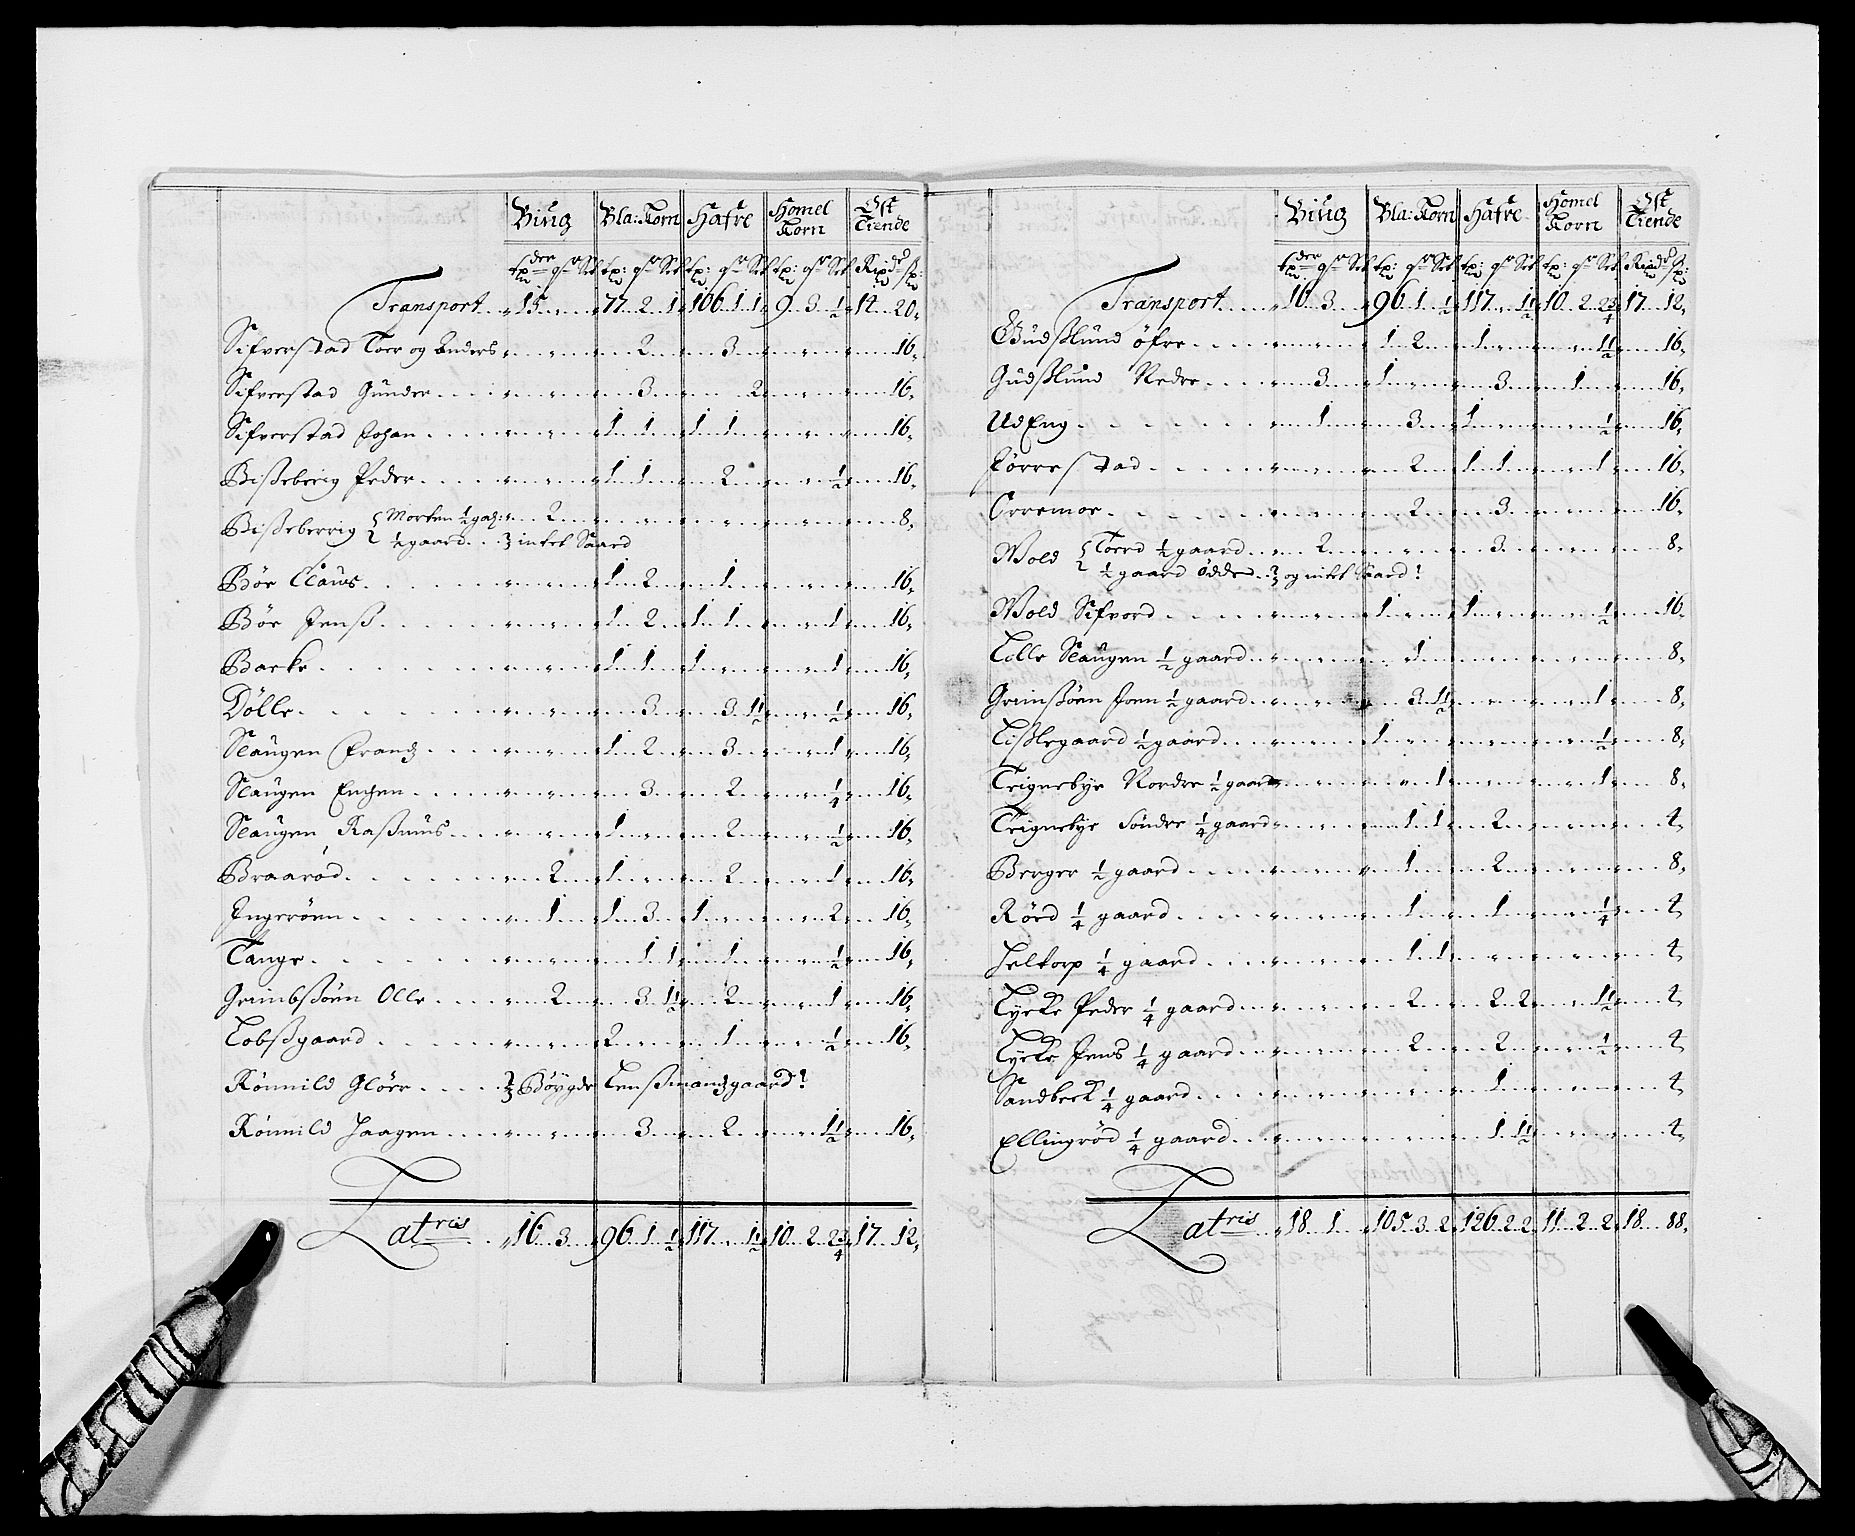 Biug Bla: Korn Hafre Homel Korn Ost Tiende
Transport 15 77 2 1 106 1 1 9 3 ½ 14 20
Sifverstad Toer og Anders 2 3 16
Sifverstad Gunder 3 2 16
Sifverstad Johan 1 1 1 1 16
Bißeberig Peder 1 1 2 ½ 16
Bißeberrig Morten ½ gad: 2 8
½ gaard intet Saard
Böe Claus 1 2 1 16
Böe Jenß 1 2 1 1 1 16
Backe 1 1 1 1 16
Dölle 3 3 1½ ½ 16
Slaugen Frandz 1 2 3 1 16
Slaugen Enchen 3 2 ¼ 16
Slaugen Raßmus 1 2 ½ 16
Braaröd 2 1 2 1 16
Ingeröen 1 1 3 1 2 16
Tange 1 1 1 ½ 16
Grimbßöen Olle 2 3 1½ 2 1 16
Lobßgaard 2 1 ½ 16
Rönnild Glöer Böygde Lenßmandzgaard!
Rönnild Haagen 3 2 1½ 16
Latris 16 3 96 1 ½ 117 1½ 10 2 2¾ 17 12
Biug Bla: Korn Hafre Homel Korn Ost Tiende
Transport 16 3 96 1 ½ 117 1½ 10 2 2¾ 17 12
Gudßlund öfre 1 2 1 1½ 16
Gudßlund Nedre 3 1 3 1 16
UdEng 1 3 1 ½ 16
Jörrestad 2 1 1 1 16
Orremoe 2 3 16
Wold Toerd ½ gaard 2 3 8
½ gaard Ödde og intet Saard!
Wold Sifvord 1 1 ½ 16
Lolle Slaugen ½ gaard 1 8
Grimßöen Joen ½ gaard 3 1½ 1 8
Lißlegaard ½ gaard 1 ½ 8
Teignebye Nordre ½ gaard 1 1 8
Teignebye Söndre ¼ gaard 1 1 2 4
Berger ½ gaard 1 2 8
Röed ¼ gaard 1 1 ¼ 4
Heltorp ¼ gaard 1 1 4
Lycke Peder ¼ gaard 2 2 2 1½ 4
Lycke Jens ¼ gaard 2 2 ½ 4
Sandbeck ¼ gaard 1 4
Ellingröd ¼ gaard 1 1½ 4
Latris 18 1 105 3 2 126 2 2 11 2 2 18 88